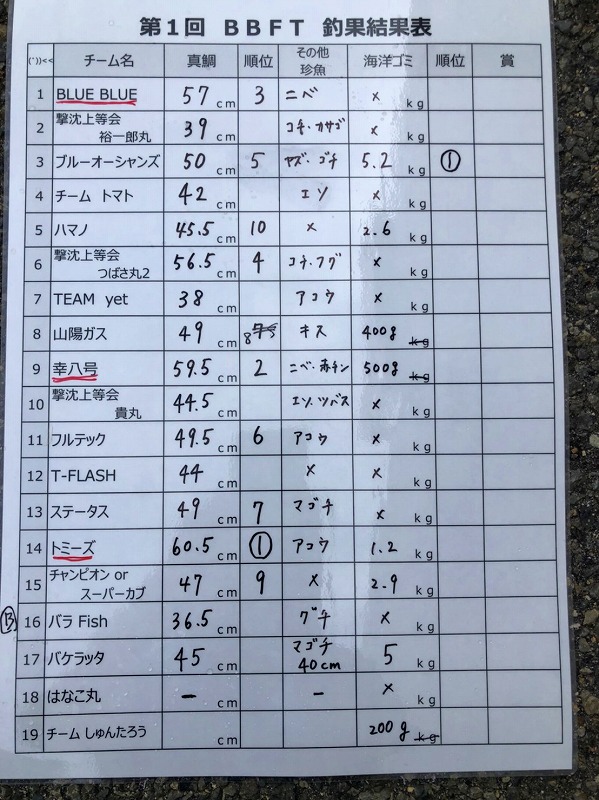 第1回 BBFT 釣果結果表
(°))<< チーム名 真鯛 順位 その他珍魚 海洋ゴミ 順位 賞
1 BLUE BLUE 57 cm 3 ニベ × kg
2 撃沈上等会 裕一郎丸 39 cm コチ・カサゴ × kg
3 ブルーオーシャンズ 50 cm 5 ヤズ・ゴチ 5.2 kg ①
4 チーム トマト 42 cm エソ × kg
5 ハマノ 45.5 cm 10 × 2.6 kg
6 撃沈上等会 つばさ丸2 56.5 cm 4 コチ・フグ × kg
7 TEAM yet 38 cm アコウ × kg
8 山陽ガス 49 cm 8 キス 400g kg
9 幸八号 59.5 cm 2 ニベ・赤チン 500g kg
10 撃沈上等会 貴丸 44.5 cm エソ、ツバス × kg
11 フルテック 49.5 cm 6 アコウ × kg
12 T-FLASH 44 cm × × kg
13 ステータス 49 cm 7 マゴチ × kg
14 トミーズ 60.5 cm ① アコウ 1.2 kg
15 チャンピオン or スーパーカブ 47 cm 9 × 2.9 kg
16 バラ Fish 36.5 cm グチ × kg
17 バケラッタ 45 cm マゴチ 40cm 5 kg
18 はなこ丸 - cm - × kg
19 チーム しゅんたろう cm 200g kg